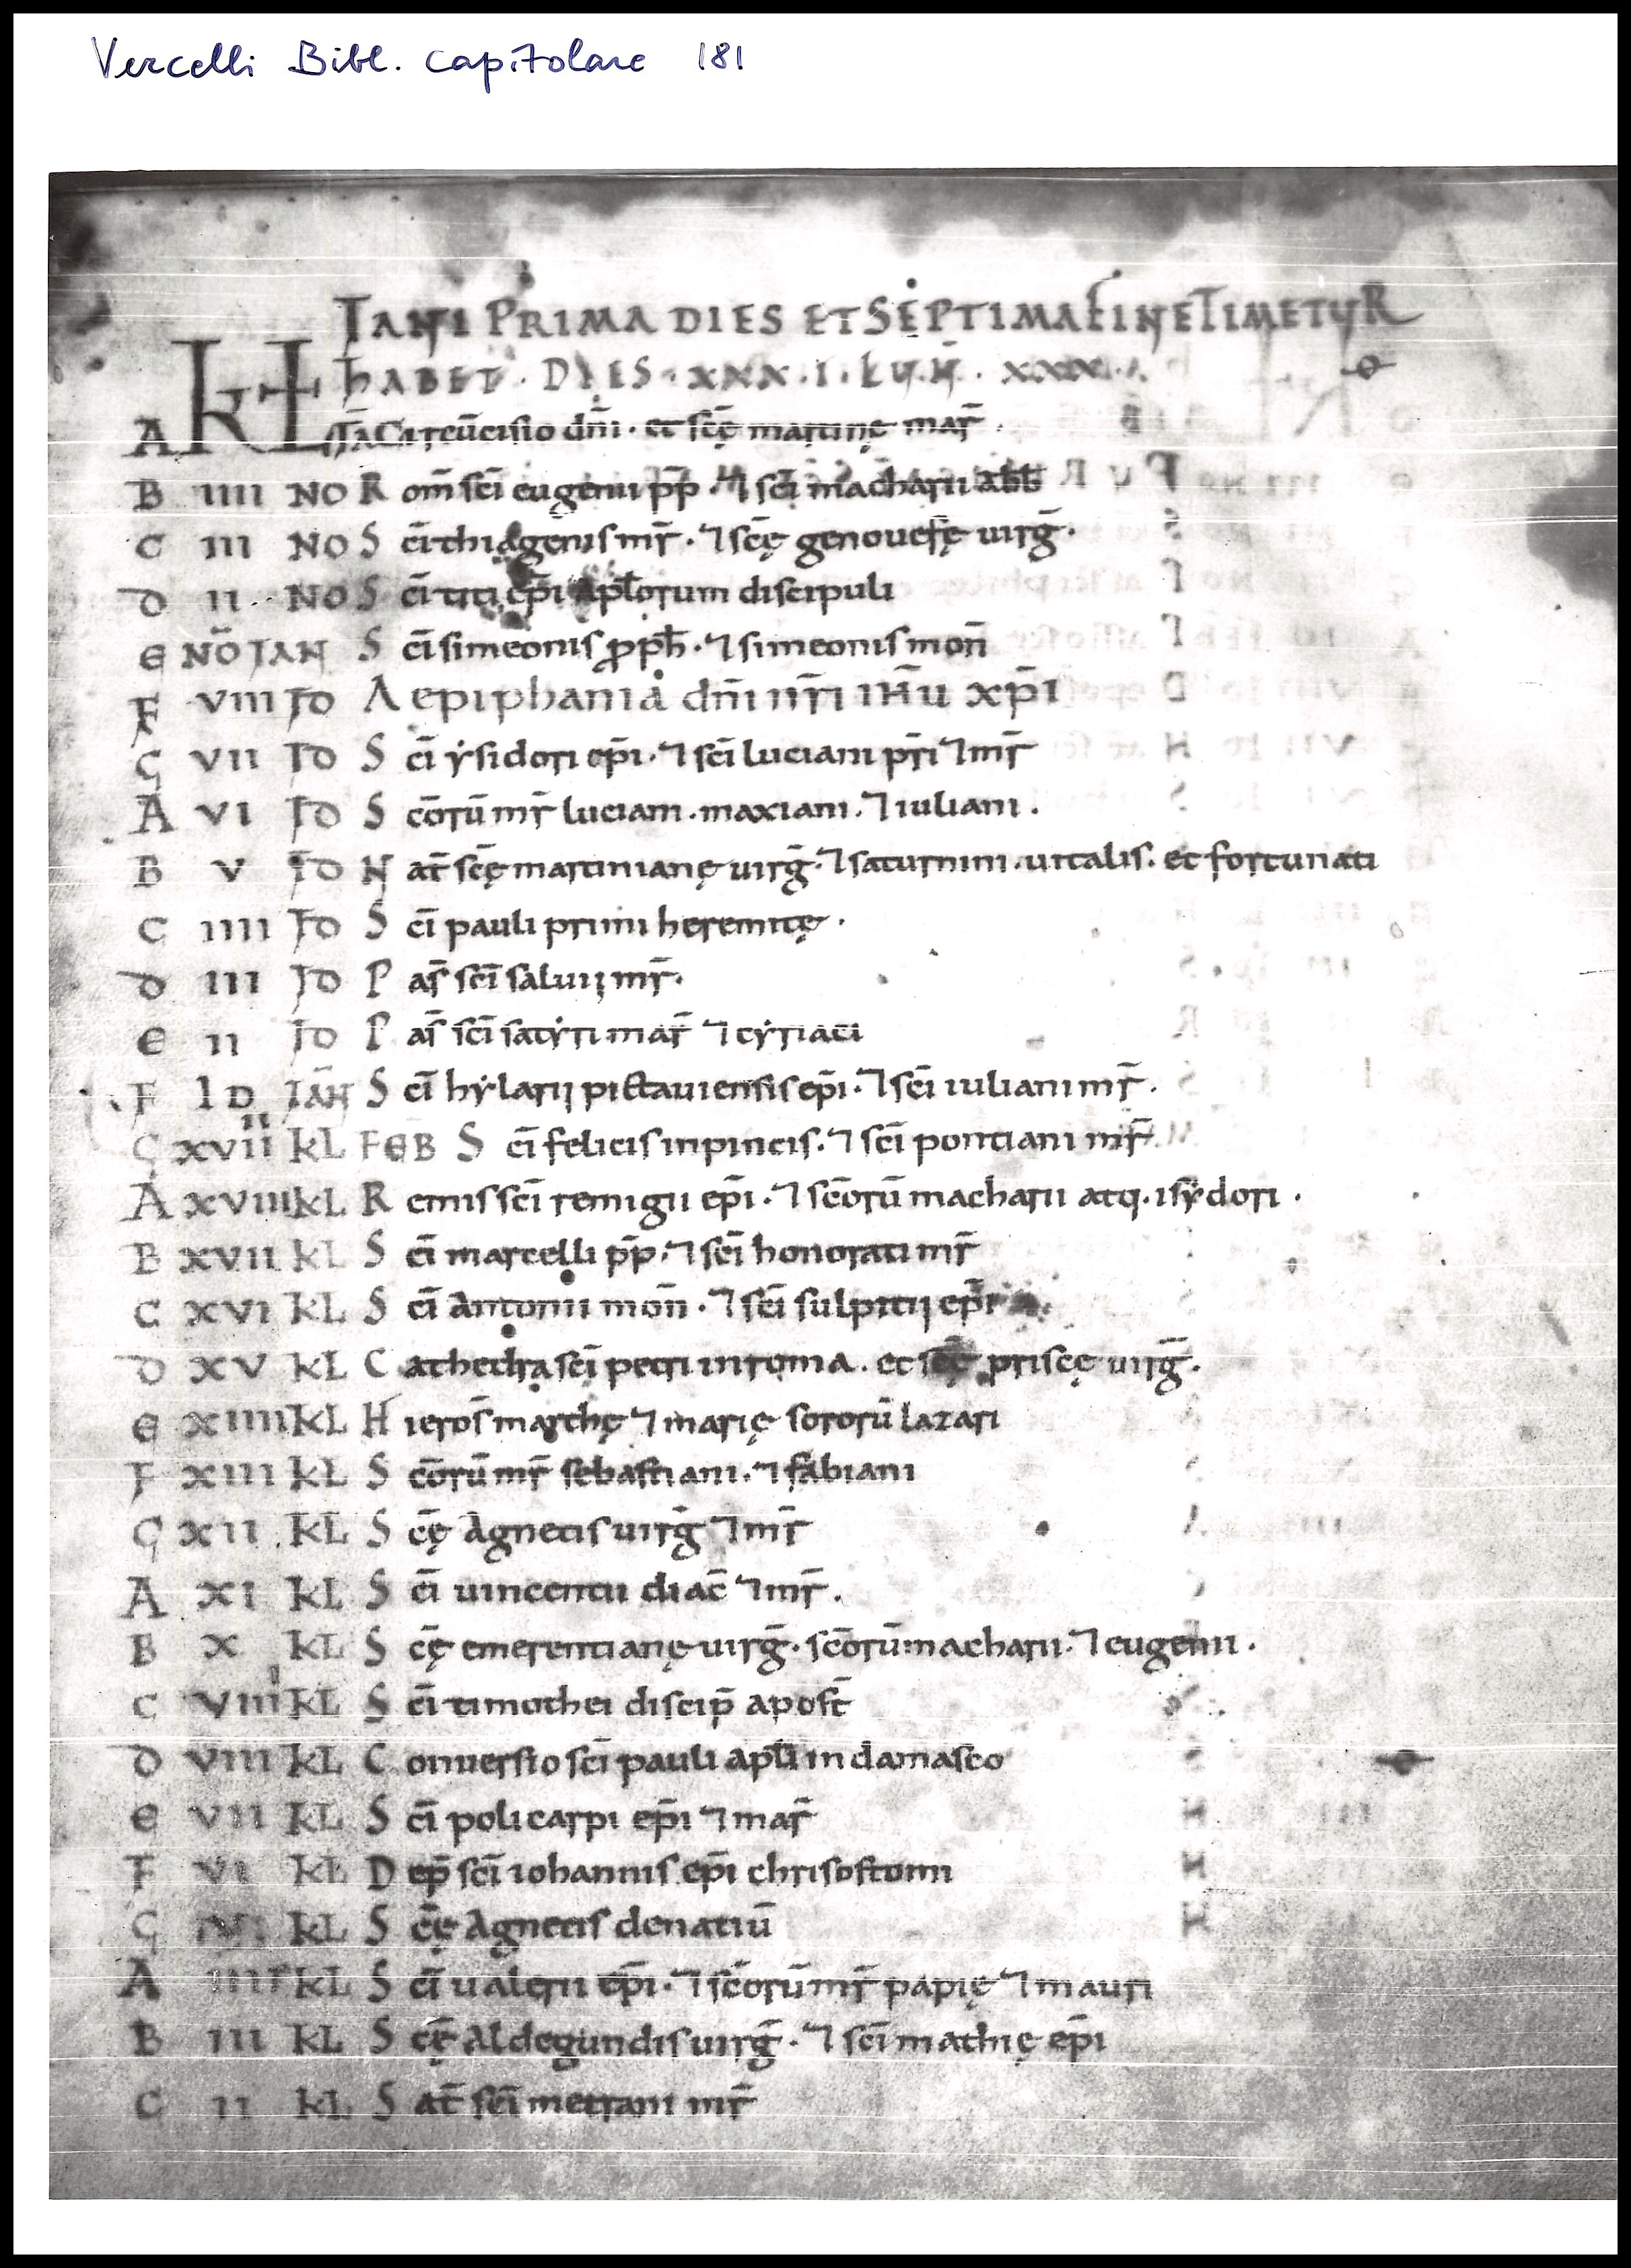 Vercelli Bibl. Capitolare 181
IANI PRIMA DIES ET SEPTIMA FINE TIMETUR
HABET · DIES · XXX · I · LUN · XXX ·
A KL IAN Circūcisio dn̄i · et scę̄ martinę mar̄ ·
B IIII NO R om̄ sc̄i eugenii pp̄ · ⁊ sc̄i macharii abb̄
C III NO S c̄i thiagenis mr̄ · ⁊ scę̄ genouefę uirḡ ·
D II NO S c̄i titi ep̄i apl̄orum discipuli
E NŌ IAN S c̄i simeonis ꝓph̄ · ⁊ simeonis mon̄
F VIII ID A epiphania dn̄i nr̄i ih̄u xp̄i
G VII ID S c̄i ẏsidori ep̄i · ⁊ sc̄i luciani pr̄i ⁊ mr̄
A VI ID S c̄orū mr̄ luciani . maxiani . ⁊ iuliani .
B V ID N at̄ scę̄ martinianę uirḡ · ⁊ saturnini . uitalis . et fortunati
C IIII ID S c̄i pauli primi heremitę ·
D III ID P as̄ sc̄i saluij mr̄ ·
E II ID P as̄ sc̄i satẏri mar̄ ⁊ cẏriaci
F ID IAN̄ S c̄i hẏlarij pictauiensis ep̄i · ⁊ sc̄i iuliani mr̄ .
G XVIIII KL FEB S c̄i felicis in pincis . ⁊ sc̄i pontiani mr̄
A XVIII KL R emis sc̄i remigii ep̄i · ⁊ sc̄orū macharii atq · isẏdori .
B XVII KL S c̄i marcelli pp̄ . ⁊ sc̄i honorati mr̄
C XVI KL S c̄i Antonii mon̄ · ⁊ sc̄i sulpitij ep̄i
D XV KL C athedra sc̄i petri in roma . et scę̄ priscę uirḡ .
E XIIII KL H ieros̄ marthę ⁊ marię sororū lazari
F XIII KL S c̄orū mr̄ sebastiani . ⁊ fabiani
G XII KL S cę̄ Agnetis uirḡ ⁊ mr̄
A XI KL S c̄i uincentii diac̄ ⁊ mr̄ .
B X KL S cę̄ emerentianę uirḡ · sc̄orū macharii . ⁊ eugenii .
C VIIII KL S c̄i timothei discip̄ apost̄
D VIII KL C onuersio sc̄i pauli apl̄i in damasco
E VII KL S c̄i policarpi ep̄i ⁊ mar̄
F VI KL D ep̄ sc̄i iohannis ep̄i chrisostomi
G V KL S cę̄ Agnetis de natiū
A IIII KL S c̄i ualerii ep̄i · ⁊ sc̄orū mr̄ papię ⁊ mauri
B III KL S cę̄ Aldegundis uirḡ · ⁊ sc̄i mathię ep̄i
C II KL S at̄ sc̄i metrani mr̄